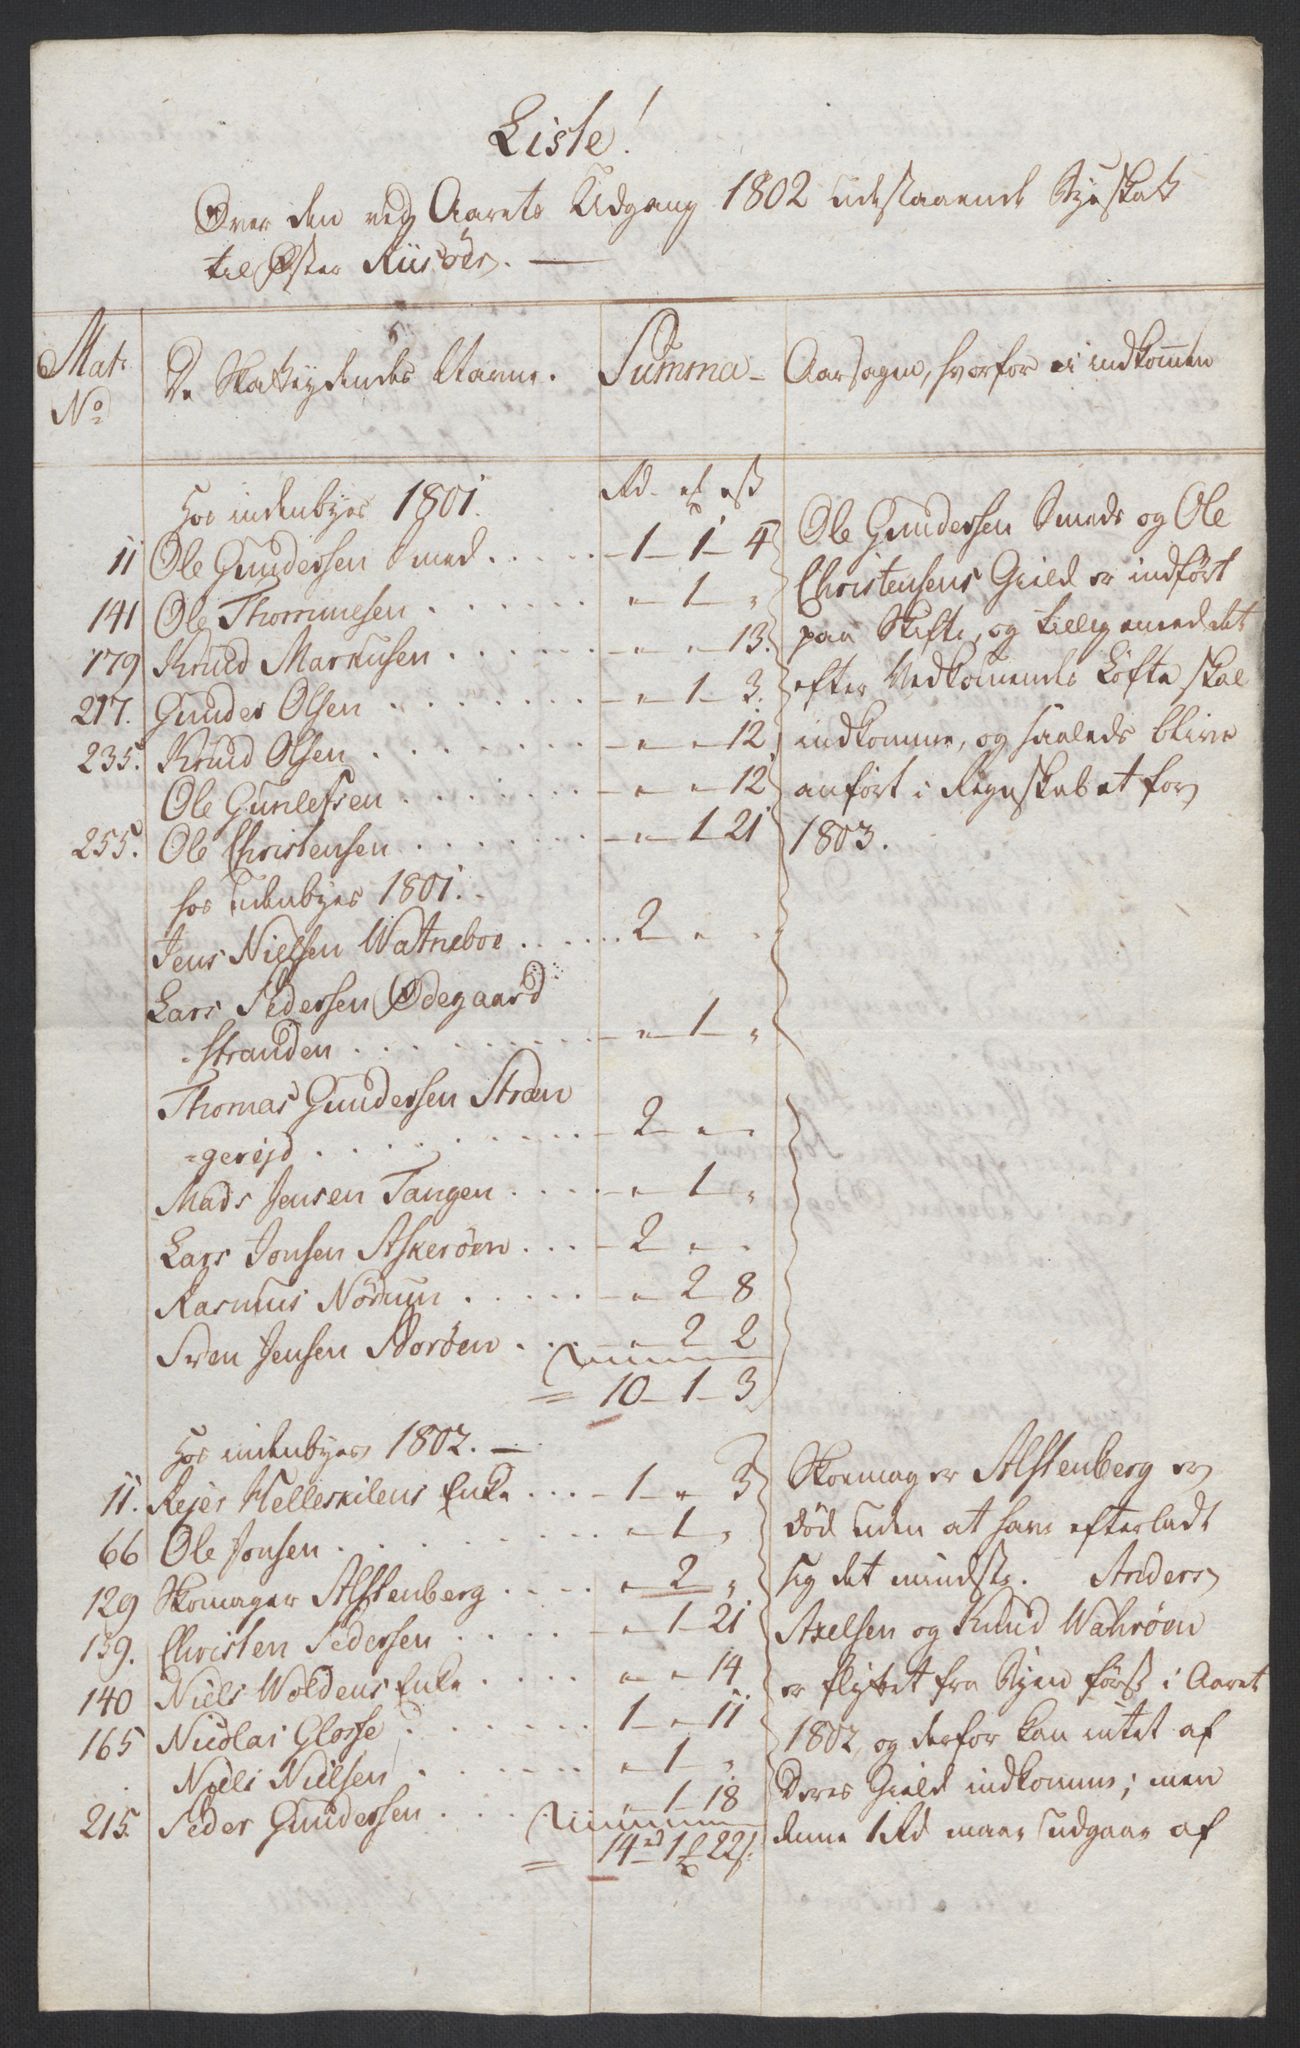 Liste!
Over den ved Aarets Udgang 1802 udestaaende Byeskat
til Øster Riisöer. —
Mat: No
De Skatteydendes Navne.
Summa
Aarsagen, hvorfor ei indkommen
hos indenbyes 1801.
Rd. ß
11 Ole Gundersen Smed . . . . . 1 1 4
141 Ole Thommesen . . . . . . " 1 "
179 Knud Markusen . . . . . . " " 13.
217. Gunder Olsen . . . . . . . " 1 3.
235. Knud Olsen . . . . . . . . " " 12
Ole Gunlefsen . . . . . . . " " 12
255. Ole Christensen . . . . . . " 1 21
hos udenbyes 1801.
Jens Nielsen Watneboe . . . . . 2 " "
Lars Pedersen Ødegaard
-stranden . . . . . . . . . " 1 "
Thomas Gundersen Stran
=gerejd . . . . . . . . . 2 " "
Mads Jensen Tangen . . . . " 1 "
Lars Jonsen Askerøen . . . 2 " "
Rasmus Nödum . . . . . " 2 8
Sven Jensen Storöen . . . " 2 2
= 10 1 3
Ole Gundersen Smeds og Ole
Christensens Gield er indført
paa Skifte, og tilligemed det
efter Vedkommendes Løfte skal
indkomme, og saaleds blive
anført i Regnskabet for
1803.
hos indenbyes 1802. —
11. Rejer Helleskilens Enke . . . 1 " 3
66 Ole Jonsen . . . . . . . . " 1 "
129 Skomager Alstenberg . . . . " 2 "
139. Christen Pedersen . . . . . " 1 21
140 Niels Woldens Enke . . . . " " 14
165 Nicolai Glosse . . . . . . . 1 " 11
Niels Nielsen . . . . . . . " 1 "
215. Peder Gundersen . . . . " 1 18
= 14 rd 1 22ß.
Skoemager Alstenberg er
död uden at have efterladt
sig det mindste. Anders
Axelsen og Knud Wahröen
er flyttet fra Byen først i Aaret
1802, og derfor kan intet af
deres Gield indkomme; men
denne 1 Rd maae udgaae af